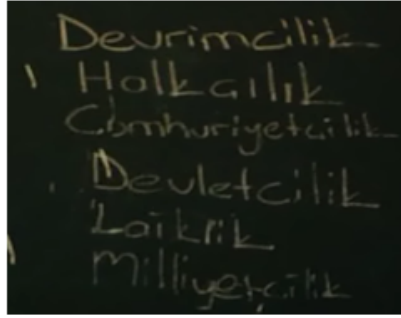 Devrimcilik
Halkcılık
Cumhuriyetcilik
Devletcilik
Laiklik
Milliyetçilik